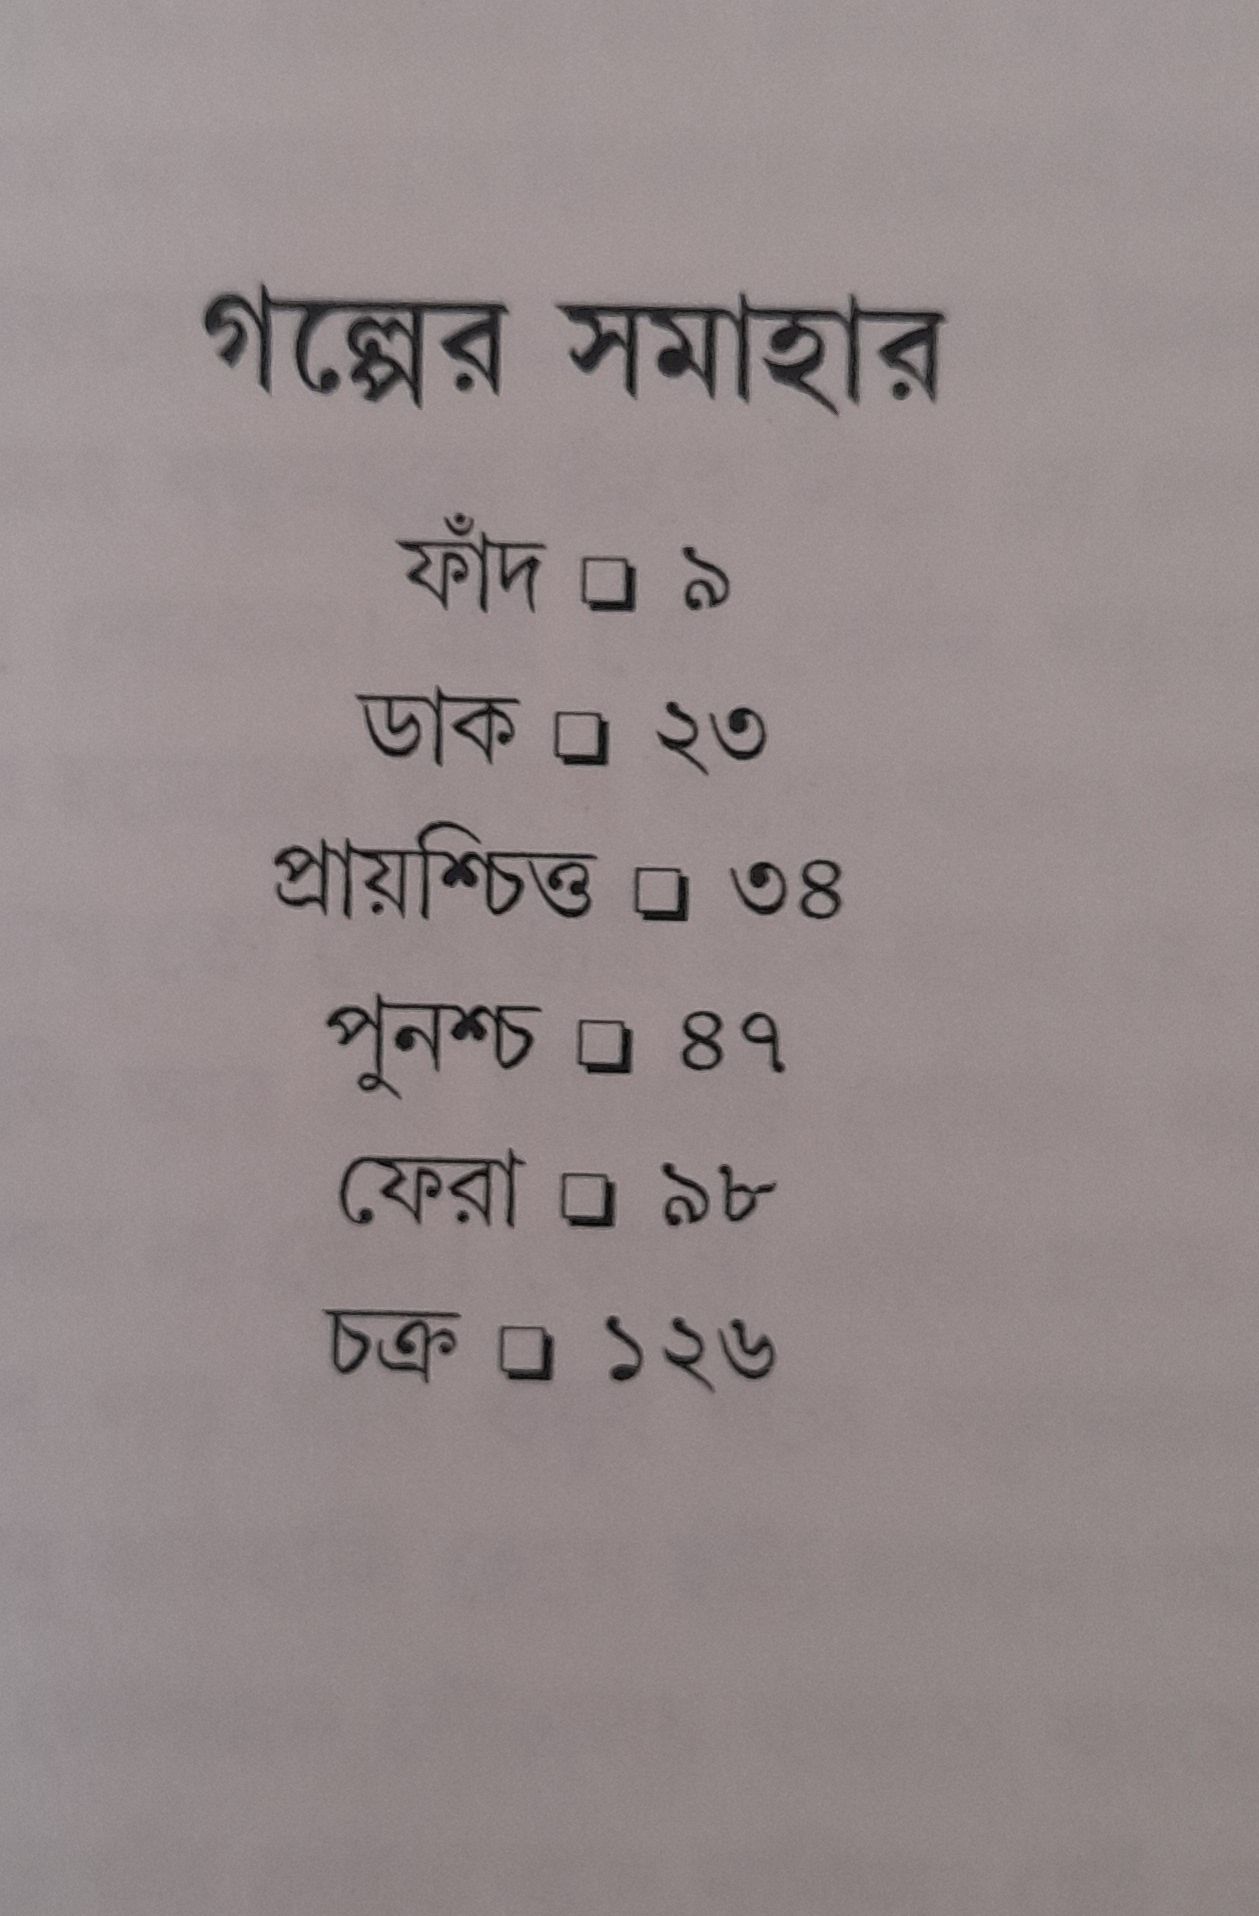 গল্পের সমাহার
ফাঁদ ❑ ৯
ডাক ❑ ২৩
প্রায়শ্চিত্ত ❑ ৩৪
পুনশ্চ ❑ ৪৭
ফেরা ❑ ৯৮
চক্র ❑ ১২৬